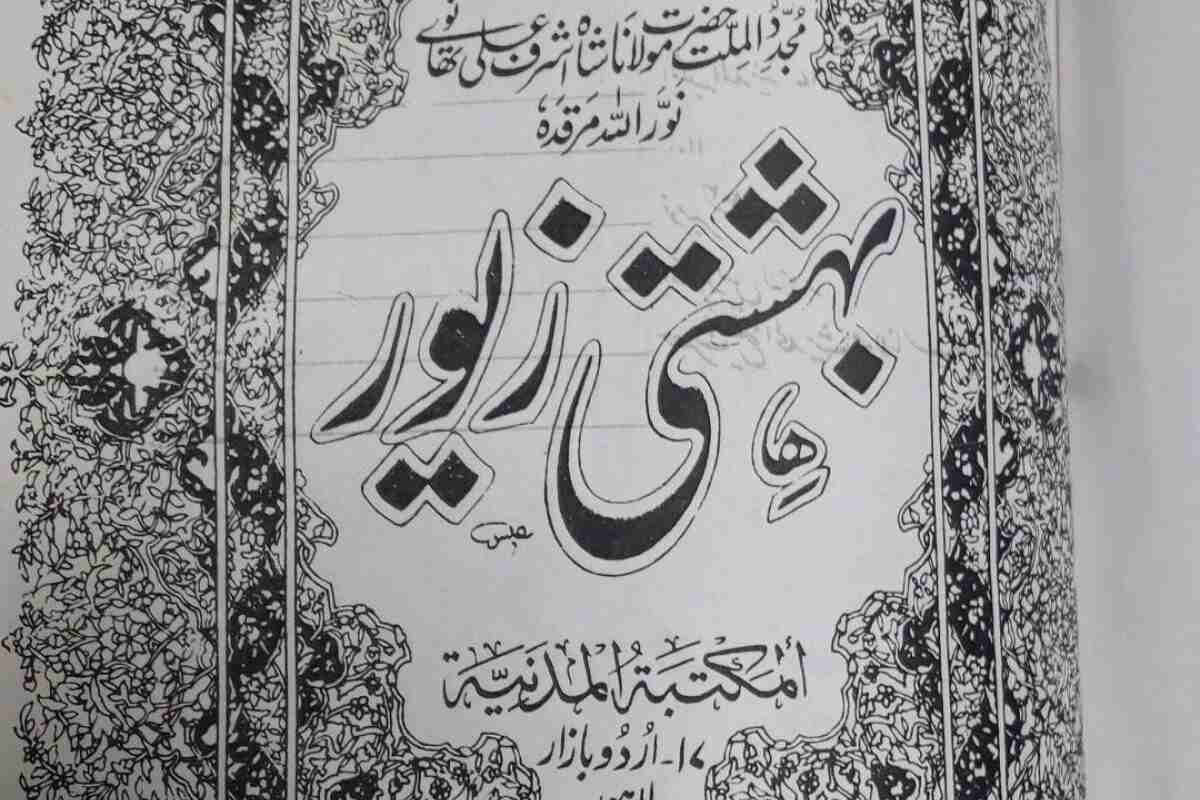 مُجدّدُ المِلّت حضرت مولانا شاہ اشرف علی تھانوی
نَوَّرَ اللہُ مَرقدَہٗ
بہشتی زیور
المکتبۃ المدنیۃ
۱۷۔ اُردو بازار
لاہور